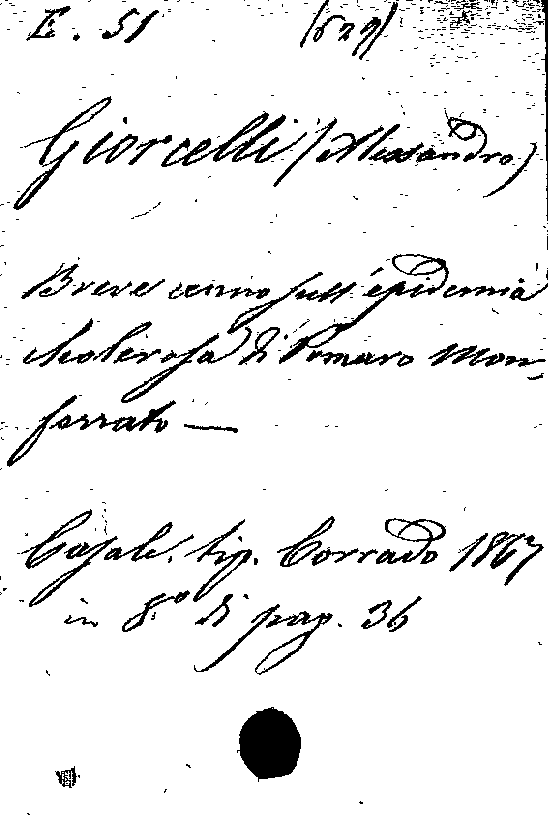 E. 51 (629)
Giorcelli (Alessandro)
Breve cenno sull'epidemia
cholerosa di Pomaro Mon-
ferrato —
Casale. tip. Corrado 1867
in 8.° di pag. 36